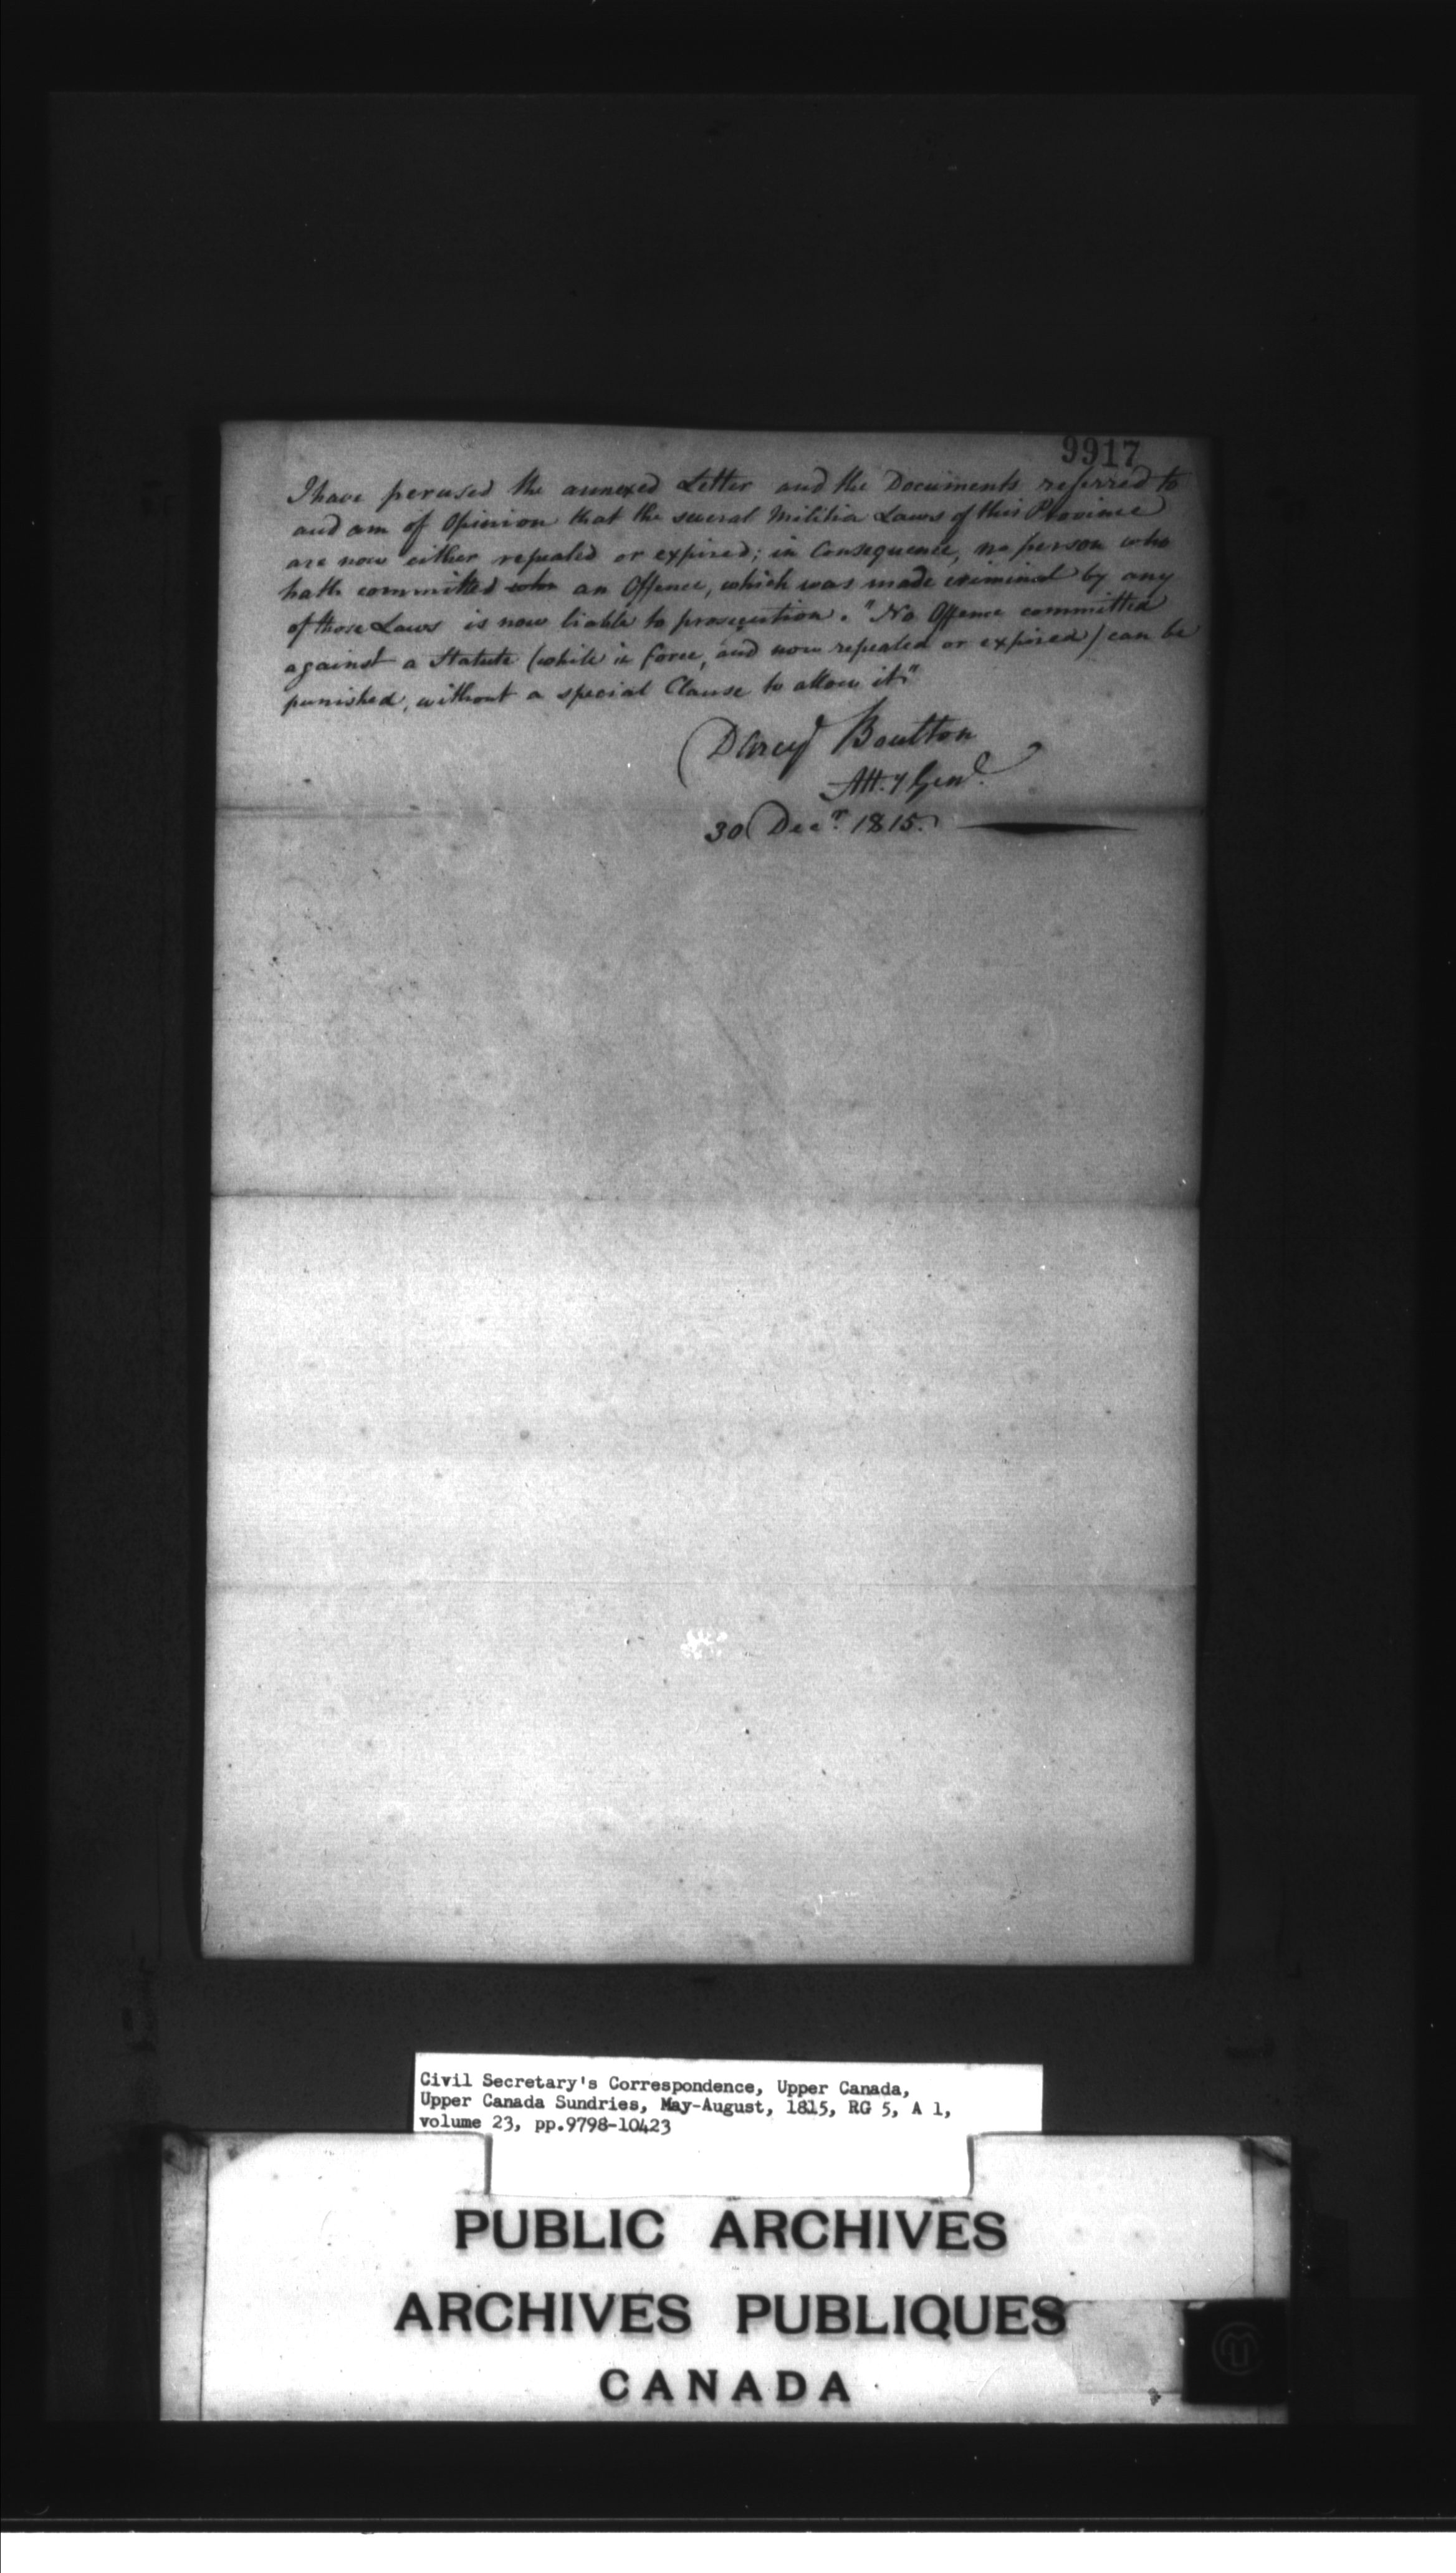 9917
I have perused the annexed Letter and the Documents referred to
and am of Opinion that the several Militia Laws of this Province
are now either repealed or expired; in Consequence, no person who
hath committed who an Offence, which was made criminal by any
of those Laws is now liable to prosecution. "No Offence committed
against a Statute (while in force, and now repealed or expired) can be
punished, without a special Clause to allow it."
D'Arcy Boulton
Att.y Genl.
30 Decr. 1815.
Civil Secretary's Correspondence, Upper Canada,
Upper Canada Sundries, May-August, 1815, RG 5, A 1,
volume 23, pp.9798-10423
PUBLIC ARCHIVES
ARCHIVES PUBLIQUES
CANADA